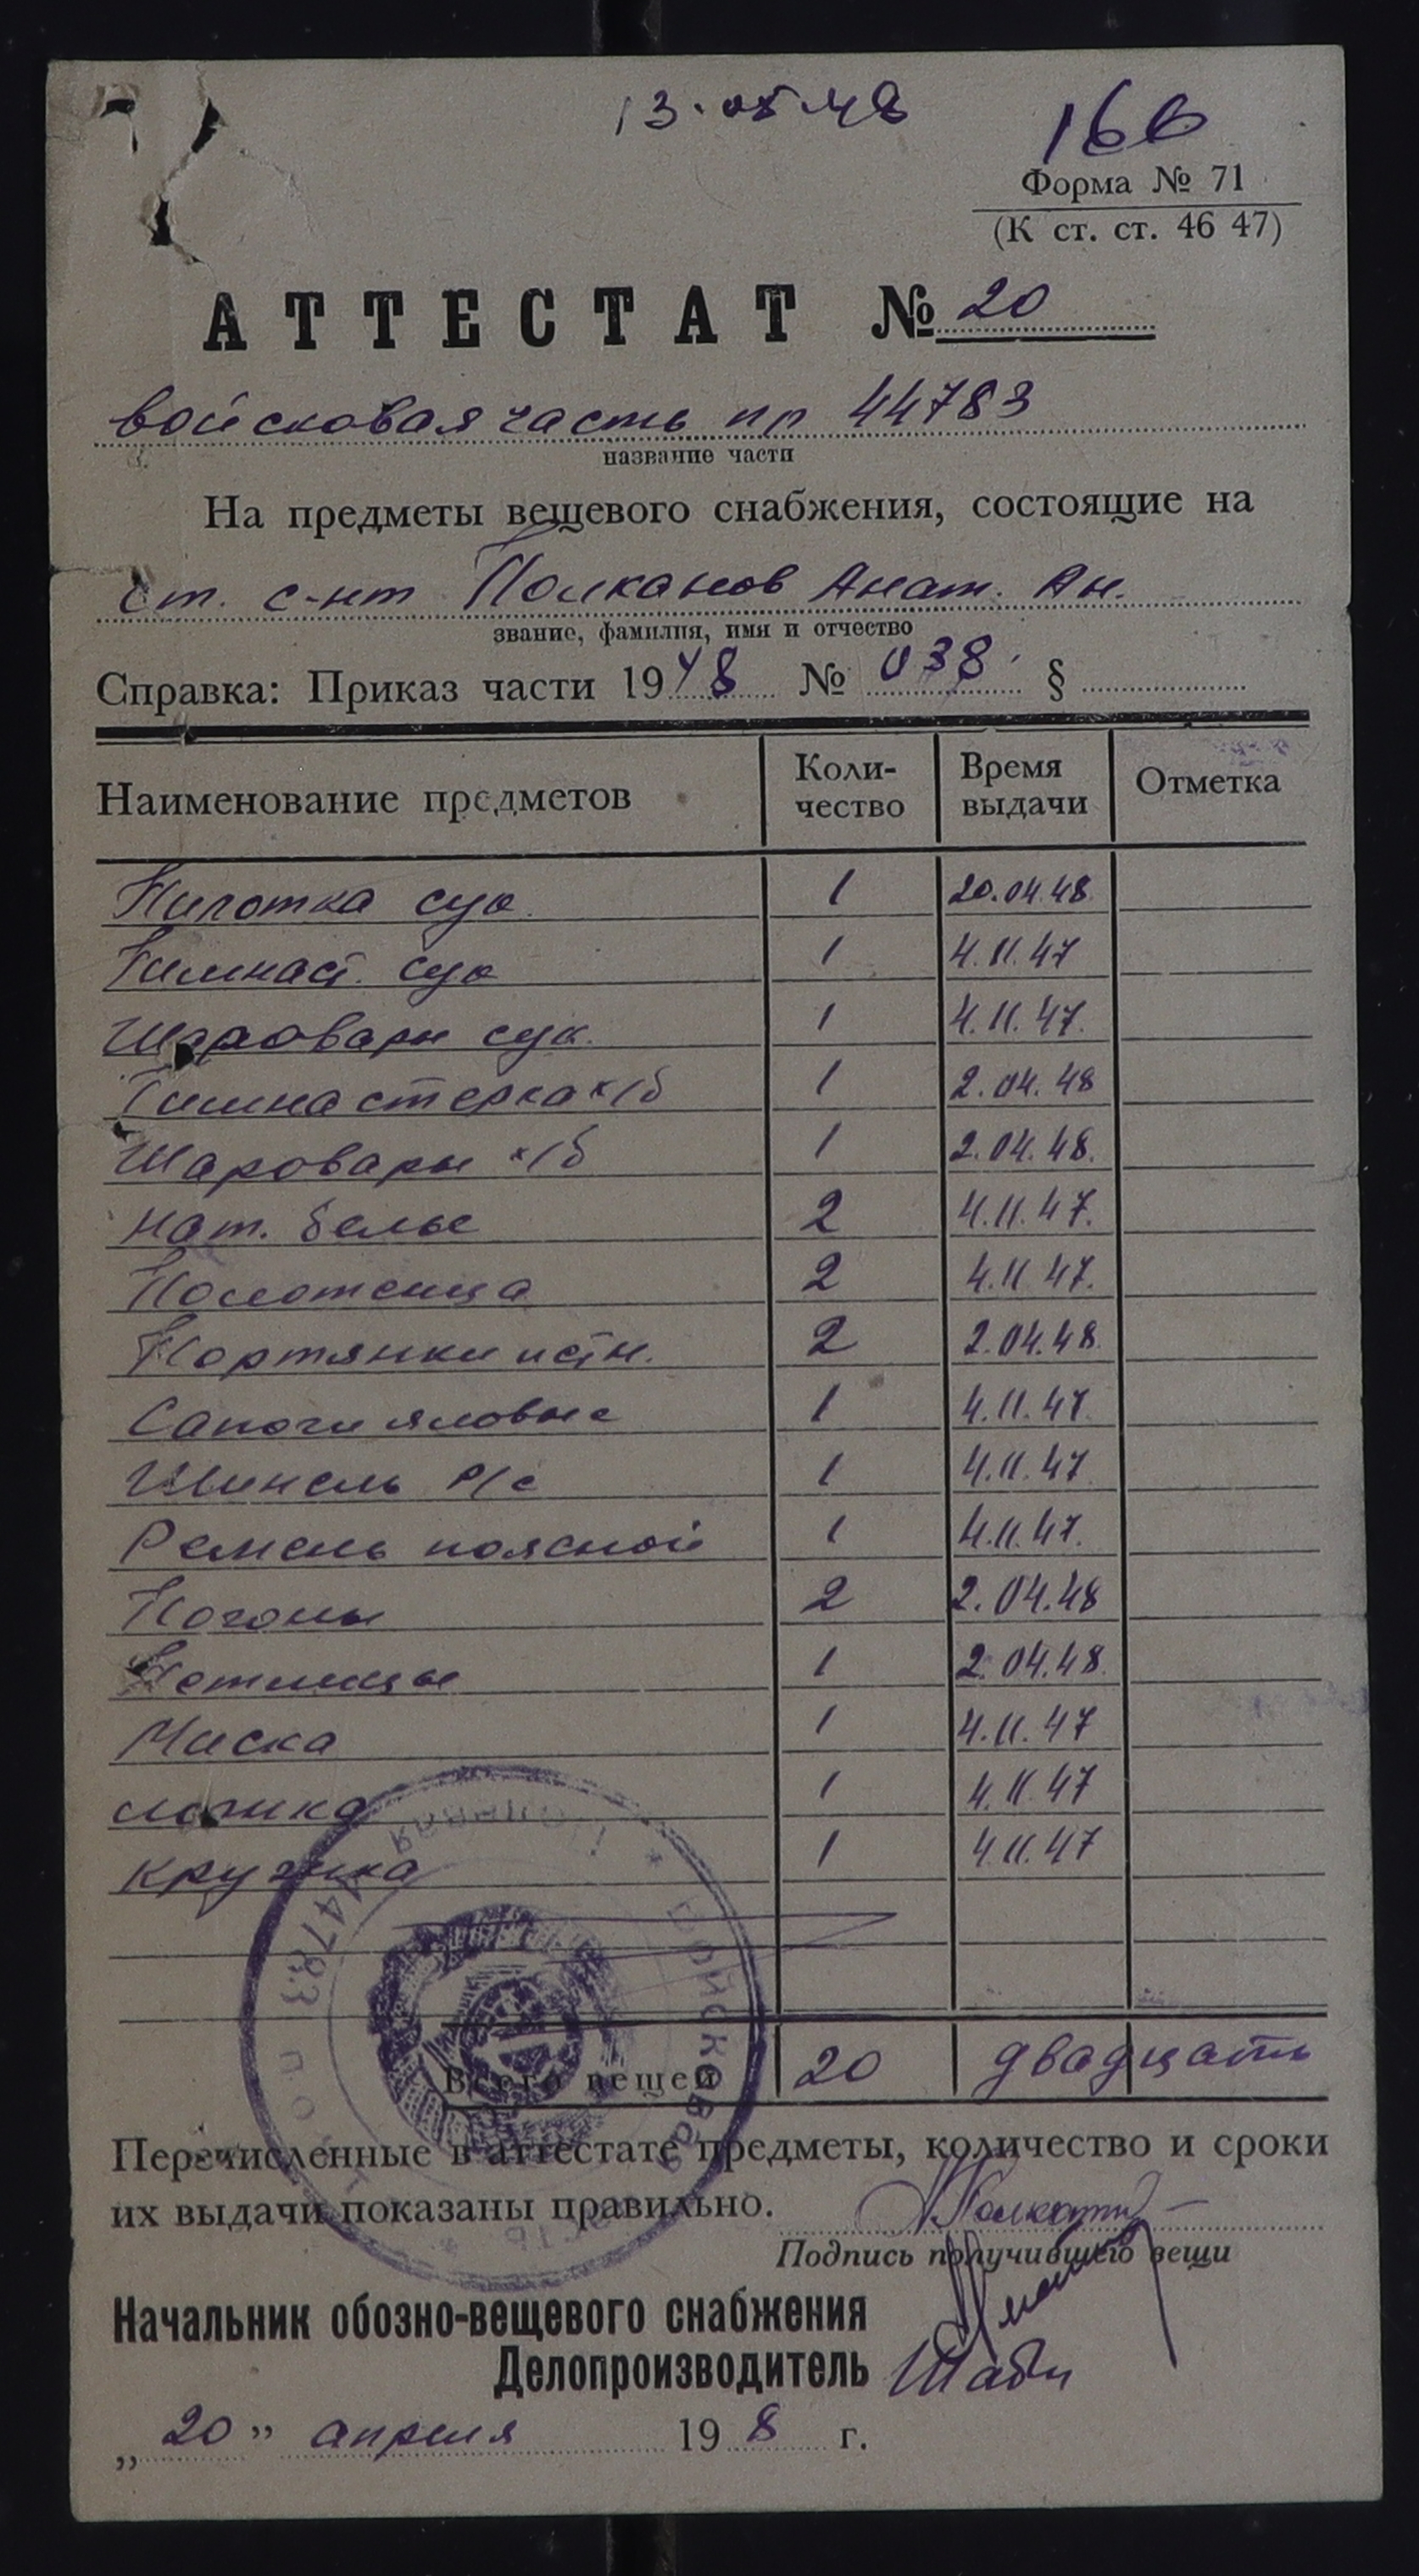 13.05.48
166
Форма № 71
(К ст. ст. 46 47)
АТТЕСТАТ № 20
войсковая часть пп 44783
название части
На предметы вещевого снабжения, состоящие на
ст. с-нт Полканов Анат. Ан.
звание, фамилия, имя и отчество
Справка: Приказ части 1948 № 038. §
Наименование предметов Коли- Время Отметка
чество выдачи
Пилотка сук. 1 20.04.48
Гимнаст. сук 1 4.11.47
Шаровары сук. 1 4.11.47.
Гимнастерка х/б 1 2.04.48
Шаровары х/б 1 2.04.48.
Нат. белье 2 4.11.47.
Полотенца 2 4.11.47.
Портянки истн. 2 2.04.48
Сапоги яловые 1 4.11.47
Шинель р/с 1 4.11.47
Ремень поясной 1 4.11.47.
Погоны 2 2.04.48
Петлицы 1 2.04.48.
Миска 1 4.11.47
ложка 1 4.11.47
кружка 1 4.11.47
Всего вещей 20 двадцать
Перечисленные в аттестате предметы, количество и сроки
их выдачи показаны правильно.
Подпись получившего вещи
Начальник обозно-вещевого снабжения
Делопроизводитель
„ 20 ” апреля 19 8 г.
Войсковая часть 44783